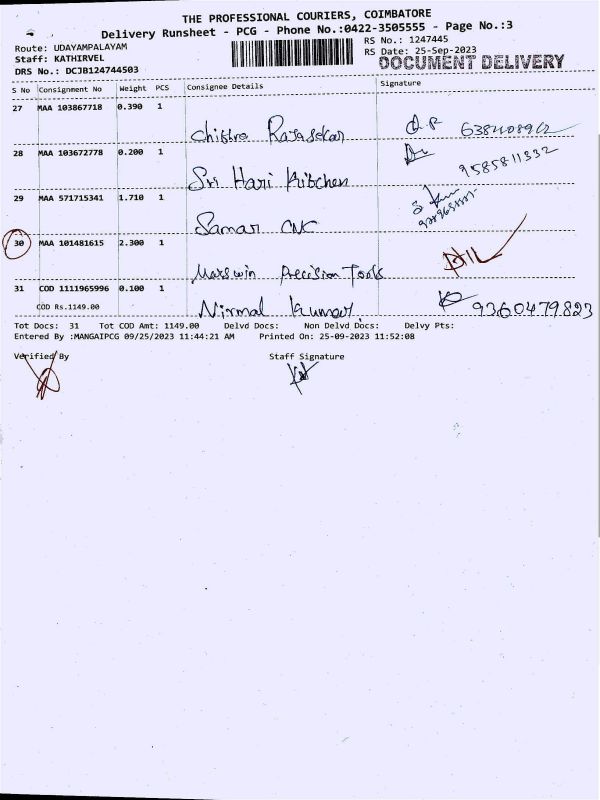 THE PROFESSIONAL COURIERS, COIMBATORE
Delivery Runsheet - PCG - Phone No.:0422-3505555 - Page No.:3
Route: UDAYAMPALAYAM
RS No.: 1247445
Staff: KATHIRVEL
RS Date: 25-Sep-2023
DRS No.: DCJB124744503
DOCUMENT DELIVERY
S No Consignment No Weight PCS Consignee Details Signature
27 MAA 103867718 0.390 1
Chithra Rajasekar
28 MAA 103672778 0.200 1
Sri Hari Kitchen 9585811332
29 MAA 571715341 1.710 1
Samar CNC
30 MAA 101481615 2.300 1
Marswin Precision Tools
31 COD 1111965996 0.100 1
COD Rs.1149.00
Nirmal Kumar 9360479823
Tot Docs: 31 Tot COD Amt: 1149.00 Delvd Docs: Non Delvd Docs: Delvy Pts:
Entered By :MANGAIPCG 09/25/2023 11:44:21 AM Printed On: 25-09-2023 11:52:08
Verified By Staff Signature